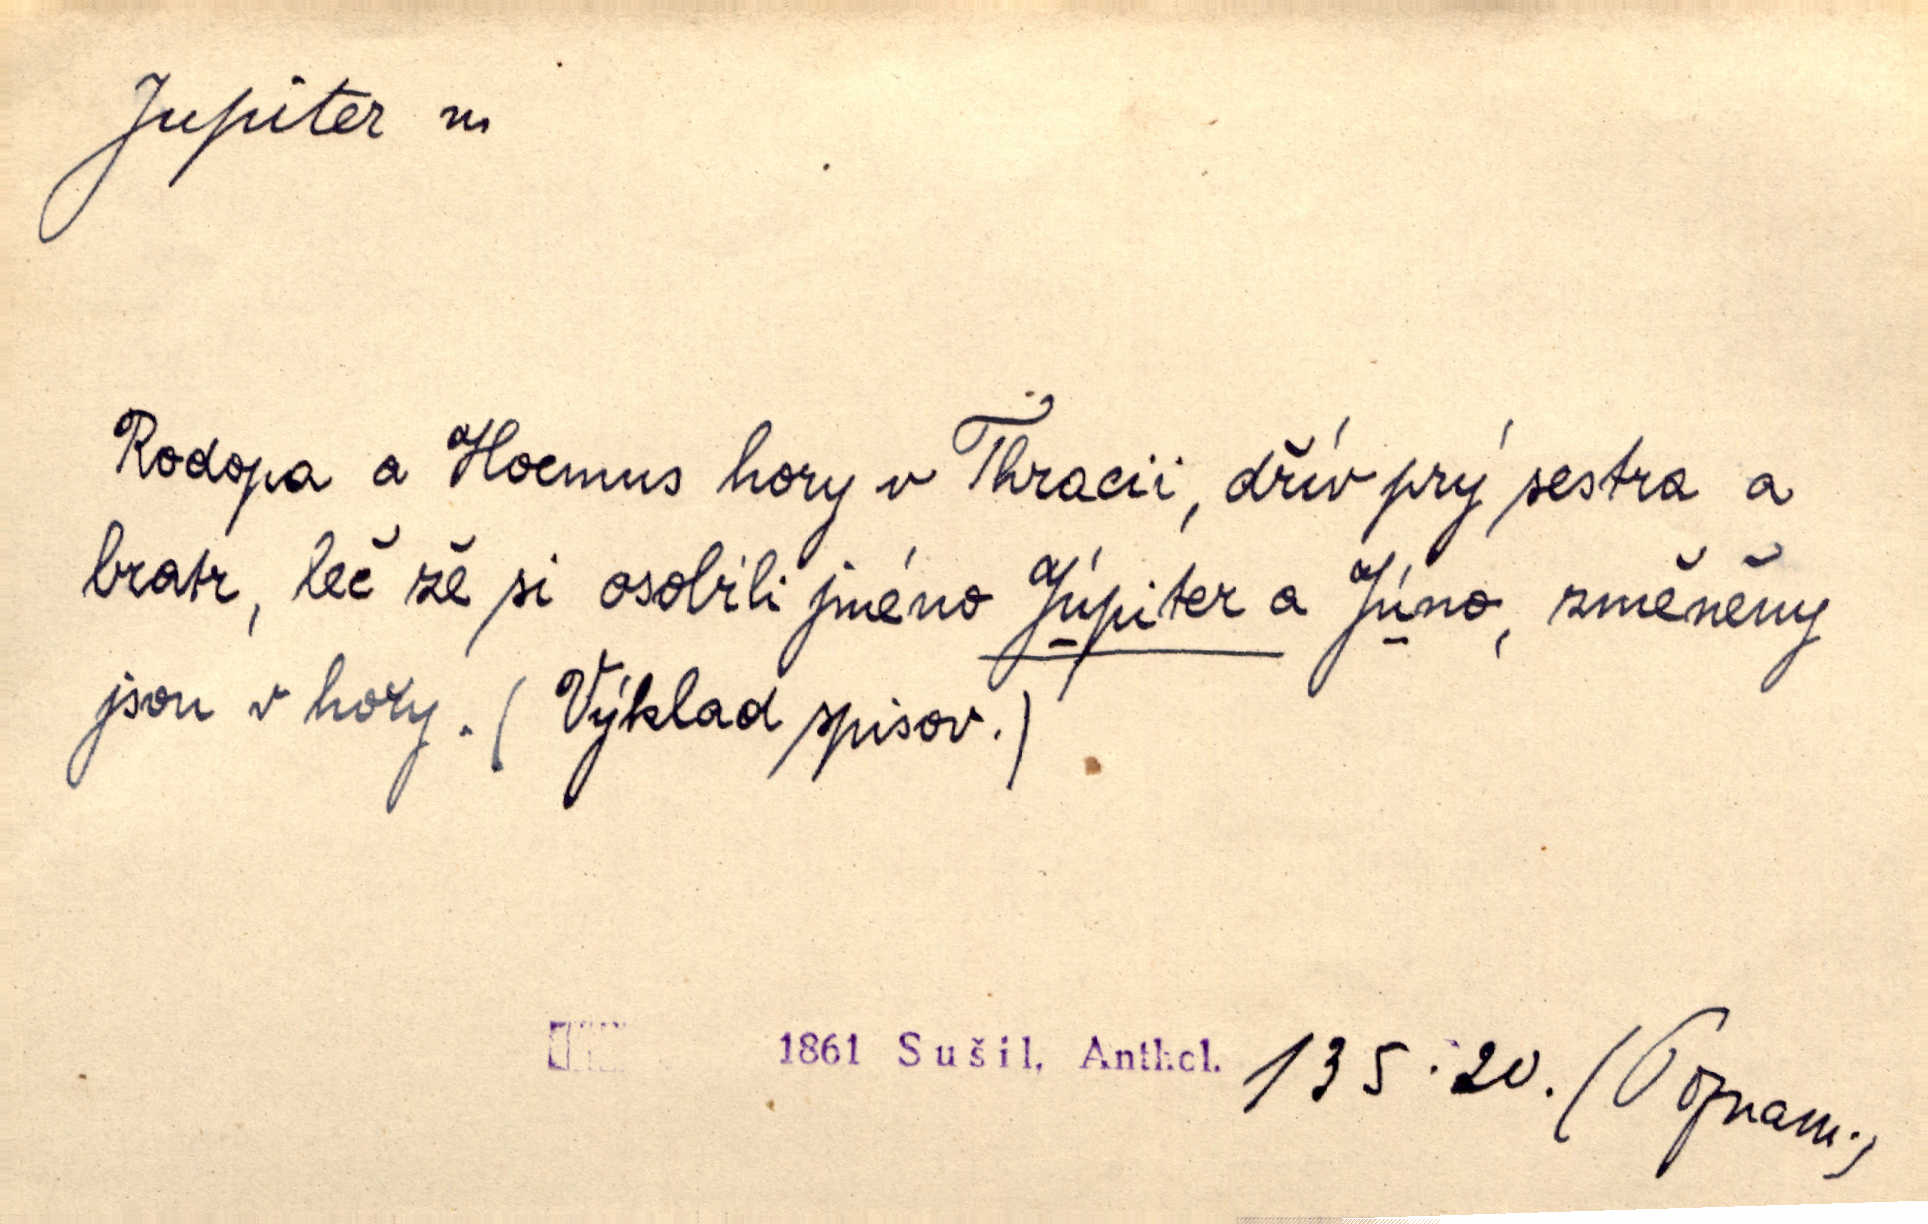 Jupiter m
Rodopa a Hoemus hory v Thracii, dřív prý sestra a
bratr, leč že si osobili jméno Júpiter a Júno, změněny
jsou v hory. (Výklad spisov.)
1861 Sušil, Anthol. 135.20. (V poznam.)